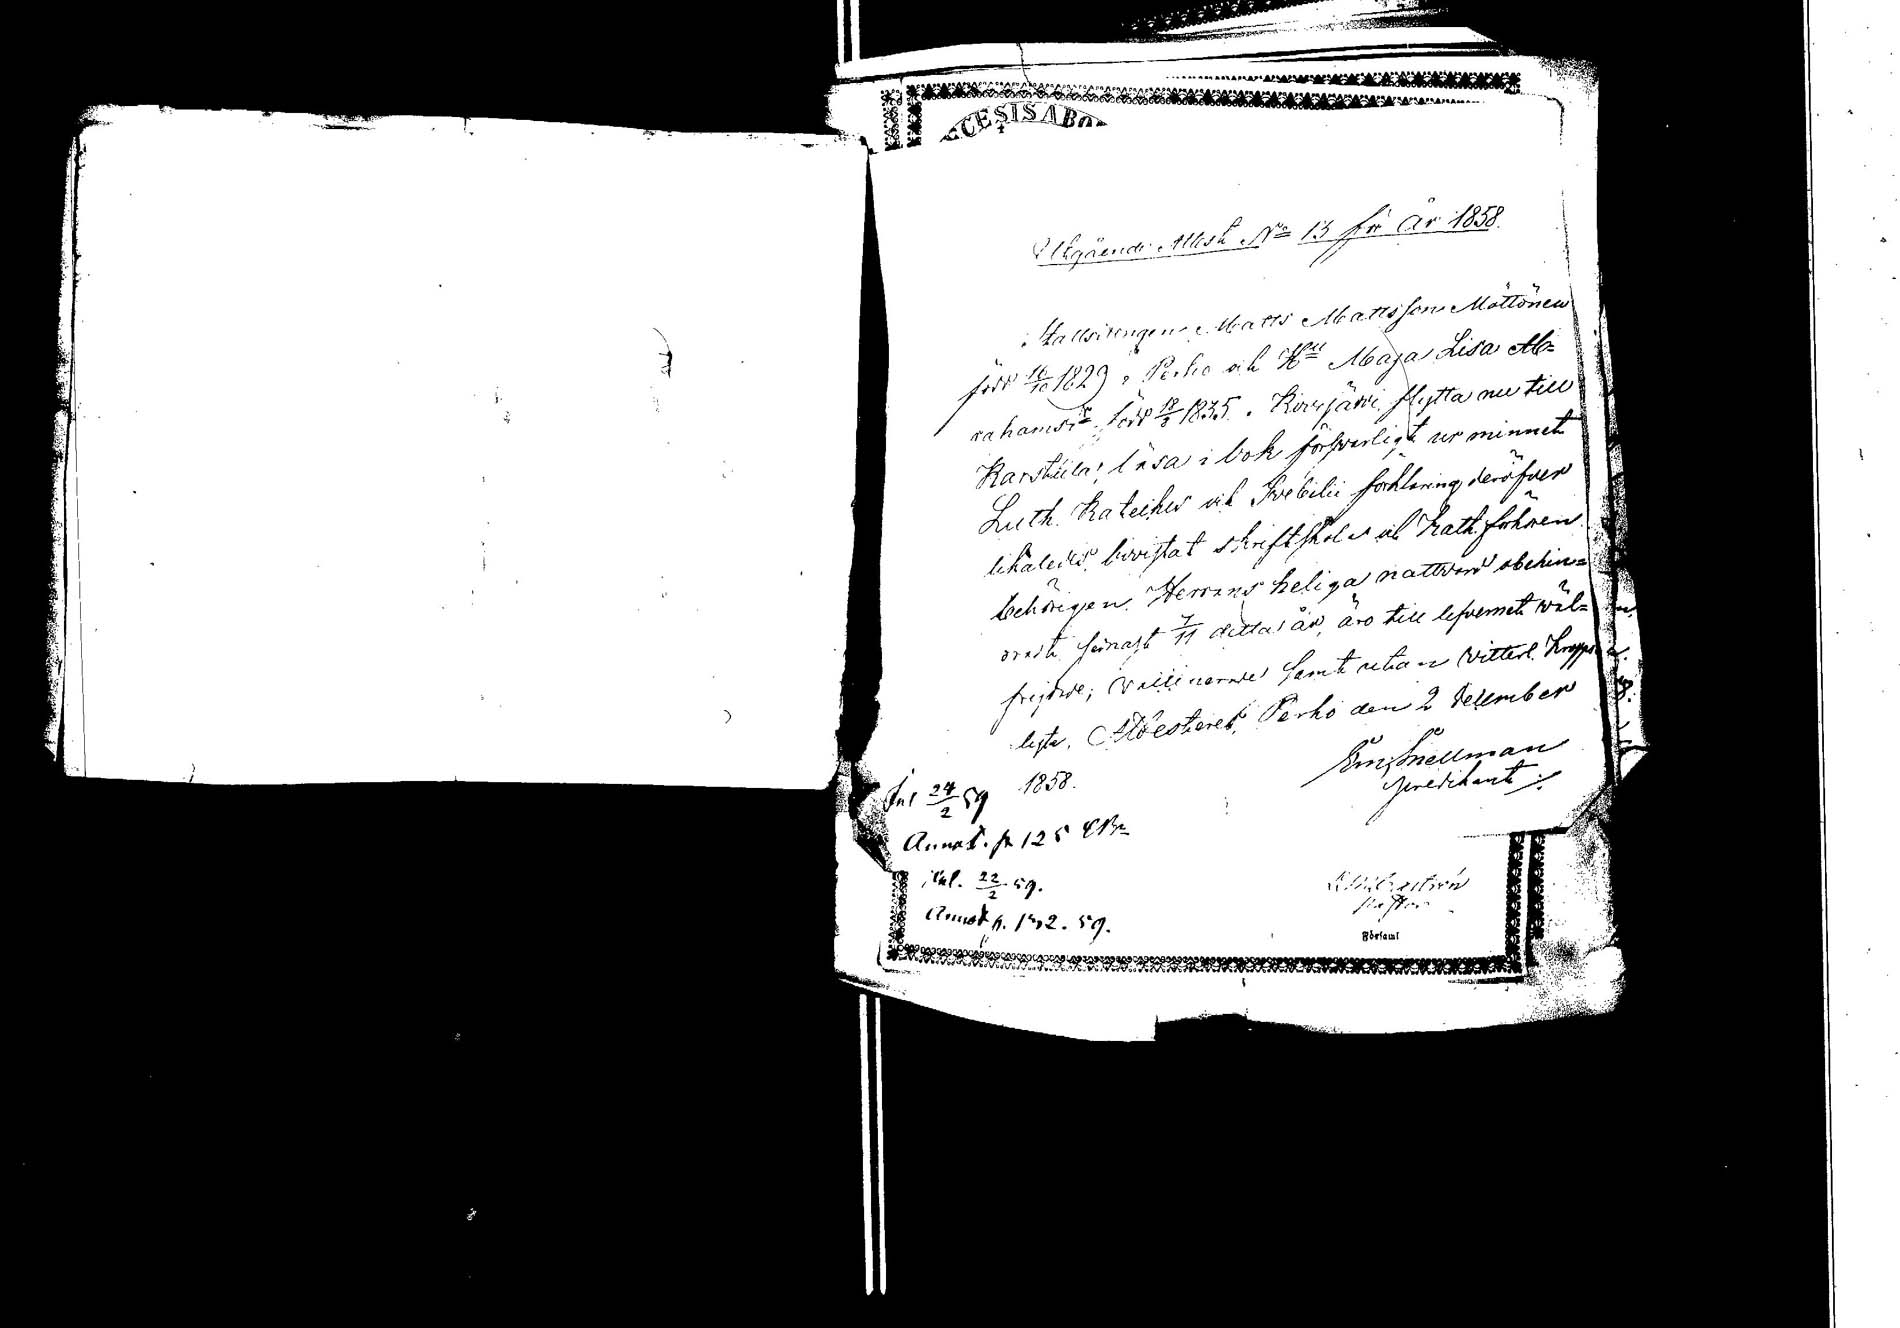 CESIS ABO
Utgående Attest No 13 för År 1858.
Matts Mattsson Möttönen
född 16/10 1829 i Perho och Hu Maja Lisa Ab=
rahamsdr född 18/3 1835 i Kivijärvi, flytta nu till
Karstula; läsa i bok försvarligt, ur minnet
Luth. Kateches och Svebilii förklaring deröfver
likaledes, bevistat skriftskolor och Kath. förhören
behörigen. Herrans heliga nattvard obehin=
drat senast 7/11 detta år, äro till lefvernet väl=
frejdade, vaccinerade samt utan vitterl. kropps
lyte. Attesterar, Perho den 2 December
1858.
Em. Snellman
predikant
Inl 24/2 59
Annot. p. 125
Inl. 22/2 59.
Annot p. 142. 59.
Pastor
Församl